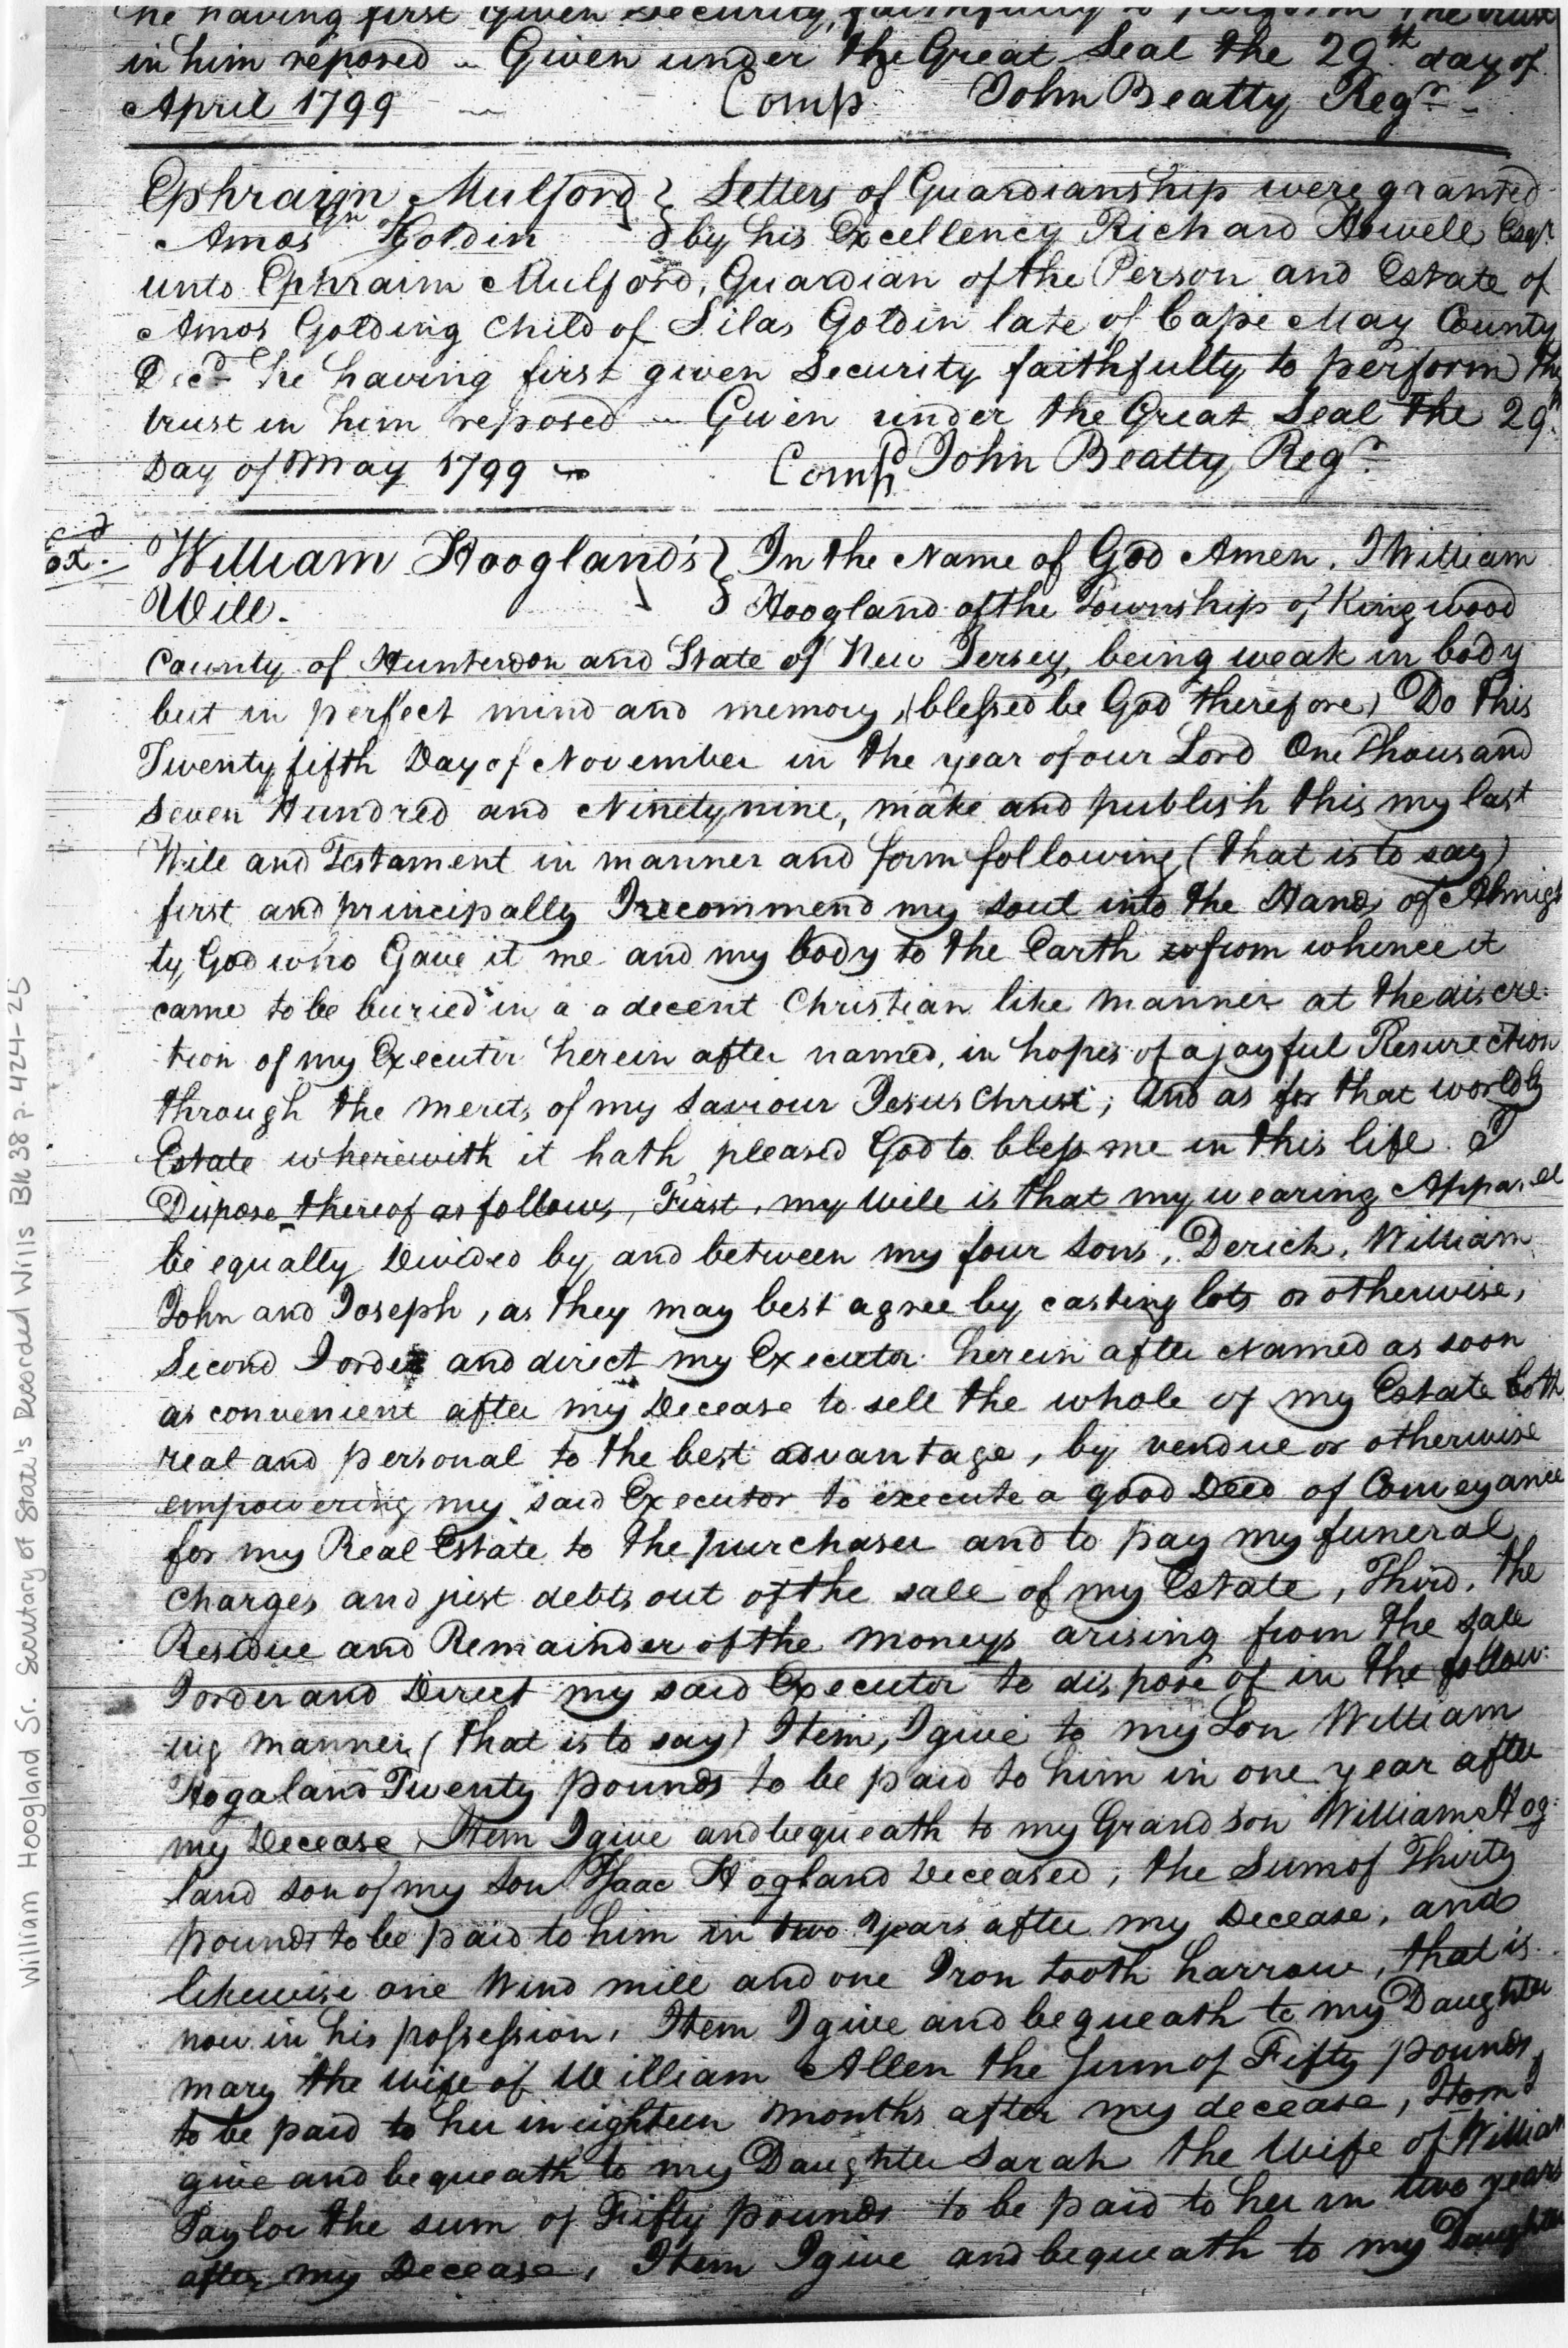 he having first Given Security, faithfully to perform the trust
in him reposed ~ Given under the Great Seal the 29th day of
April 1799 ~ Comp John Beatty Regr
Ephraim Mulford } Letters of Guardianship were granted
Gn
Amos Goldin } by his Excellency Richard Howell Esqr
unto Ephraim Mulford, Guardian of the Person and Estate of
Amos Golding Child of Silas Goldin late of Cape May County
Decd he having first given Security faithfully to perform the
trust in him reposed ~ Given under the Great Seal the 29th
Day of May 1799 ~ Compd John Beatty Regr
William Hoogland's } In the Name of God Amen. I William
Will. } Hoogland of the Township of Kingwood
County of Hunterdon and State of New Jersey, being weak in body
but in perfect mind and memory, (blessed be God therefore) Do this
Twenty fifth Day of November in the year of our Lord One Thousand
Seven Hundred and Ninety nine, make and publish this my last
Will and Testament in manner and form following (that is to say)
first and principally I recommend my soul into the Hands of Almigh
ty God who Gave it me and my body to the Earth from whence it
came to be buried in a a decent Christian like manner at the discre:
tion of my Executor herein after named, in hopes of a joyful Resurection
through the merits of my Saviour Jesus Christ; And as for that worldly
Estate wherewith it hath pleased God to bless me in this life. I
Dispose thereof as follows, First, my Will is that my wearing Apparel
be equally Divided by and between my four Sons, Derick, William
John and Joseph, as they may best agree by casting lots or otherwise,
Second I order and direct my Executor herein after Named as soon
as convenient after my Decease to sell the whole of my Estate both
real and personal to the best advantage, by vendue or otherwise
empowering my said Executor to execute a good Deed of Conveyance
for my Real Estate to the purchaser and to pay my funeral
Charges and just debts out of the sale of my Estate, Third, the
Residue and Remainder of the Moneys arising from the sale
I order and Direct my said Executor to dispose of in the follow:
ing manner (that is to say) Item, I give to my Son William
Hogaland Twenty pounds to be paid to him in one year after
my Decease Item I give and bequeath to my Grandson William Hog:
land son of my Son Isaac Hogland Deceased, the Sum of Thirty
pounds to be paid to him in two Years after my Decease, and
likewise one Wind mill and one Iron tooth harrow, that is
now in his possession, Item I give and bequeath to my Daughter
mary the wife of William Allen the Sum of Fifty pounds,
to be paid to her in eighteen months after my decease, Item I
give and bequeath to my Daughter Sarah the Wife of William
Taylor the sum of Fifty pounds to be paid to her in two years
after my Decease, Item I give and bequeath to my Daughter
William Hoogland Sr. Secutary of State's Recorded Wills Bk 38 p. 424-25